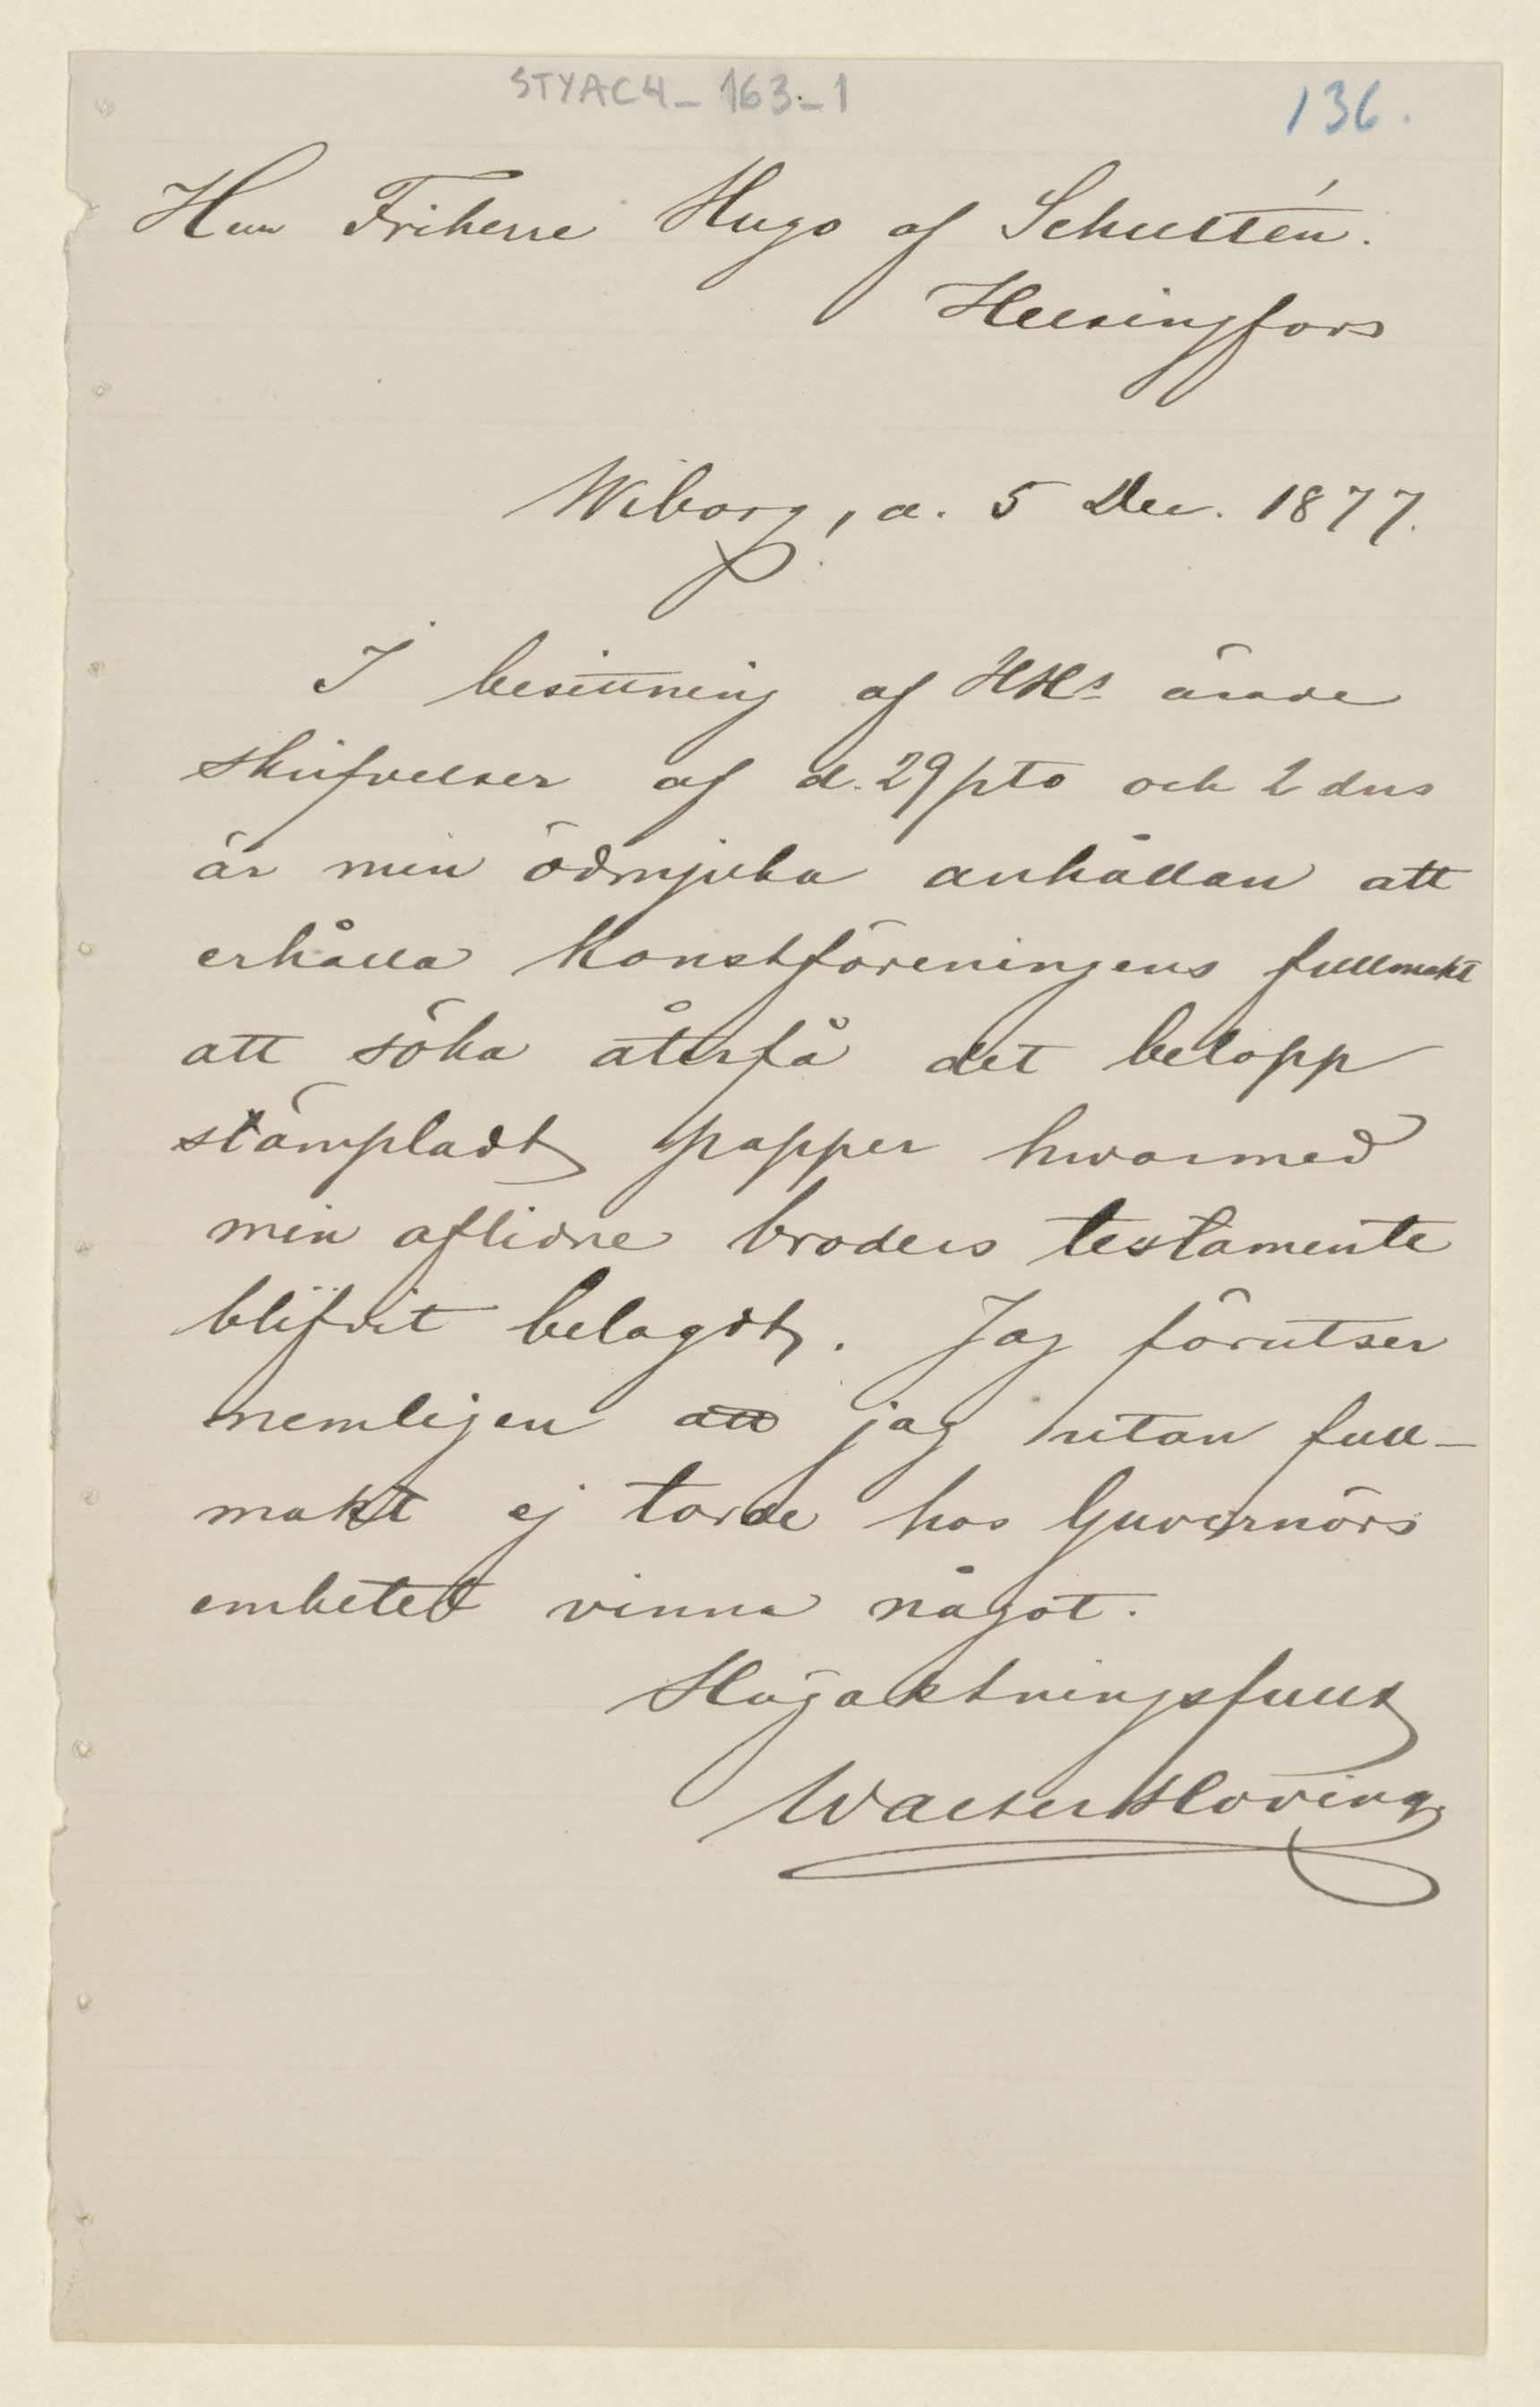 STYAC4-163-1
136.
Herr Friherre Hugo af Schultén.
Helsingfors
Wiborg, d. 5 Dec. 1877.
I besittning af HHs ärade
skrifvelser af d. 29 pto och 2 dns
är min ödmjuka anhållan att
erhålla Konstföreningens fullmakt
att söka återfå det belopp
stämpladt papper hwarmed
min aflidne broders testamente
blifvit belagdt. Jag förutser
nemligen att jag utan full-
makt ej torde hos Guvernörs
embetet vinna något.
Högaktningsfullt
Walter Hoving